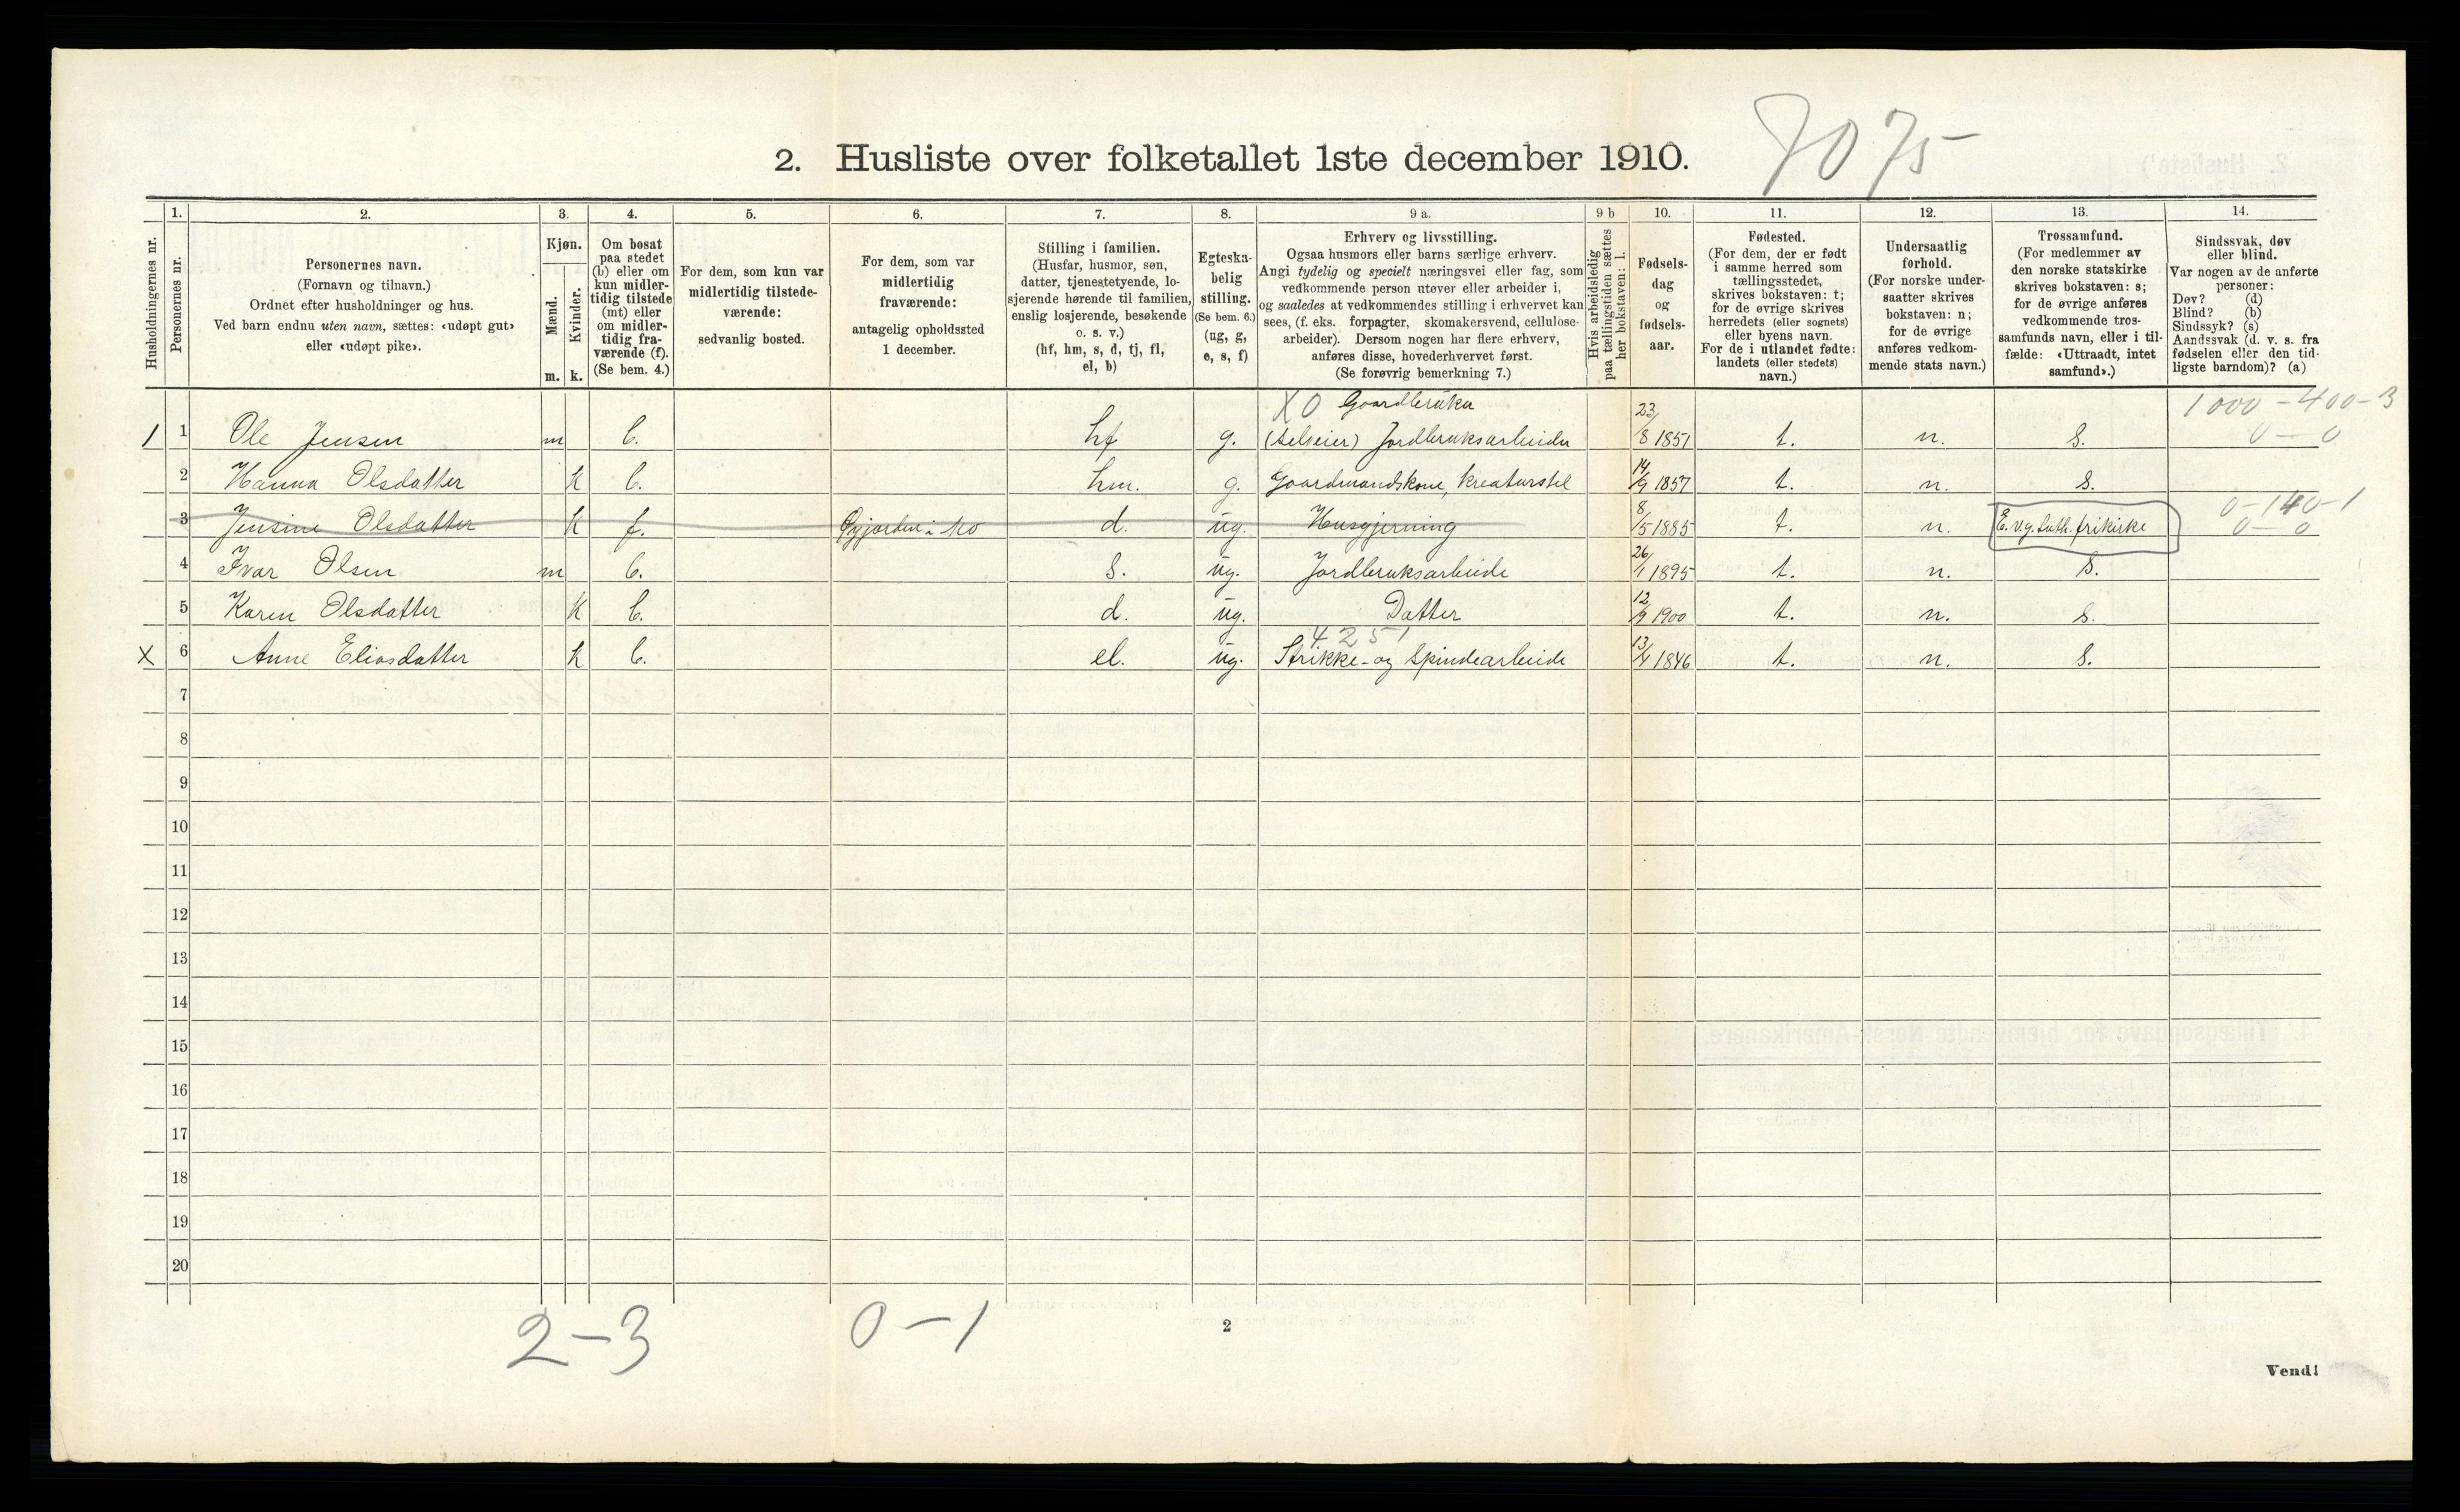 7075
2. Husliste over folketallet 1ste december 1910.
1. 2. 3. 4. 5. 6. 7. 8. 9 a. 9 b 10. 11. 12. 13. 14.
Husholdningernes nr.
Personernes nr.
Personernes navn.
(Fornavn og tilnavn.)
Ordnet efter husholdninger og hus.
Ved barn endnu uten navn, sættes: «udøpt gut»
eller «udøpt pike».
Kjøn.
Mænd.
Kvinder.
m. k.
Om bosat
paa stedet
(b) eller om
kun midler-
tidig tilstede
(mt) eller
om midler-
tidig fra-
værende (f).
(Se bem. 4.)
For dem, som kun var
midlertidig tilstede-
værende:
sedvanlig bosted.
For dem, som var
midlertidig
fraværende:
antagelig opholdssted
1 december.
Stilling i familien.
(Husfar, husmor, søn,
datter, tjenestetyende, lo-
sjerende hørende til familien,
enslig losjerende, besøkende
o. s. v.)
(hf, hm, s, d, tj, fl,
el, b)
Egteska-
belig
stilling.
(Se bem. 6.)
(ug, g,
e, s, f)
Erhverv og livsstilling.
Ogsaa husmors eller barns særlige erhverv.
Angi tydelig og specielt næringsvei eller fag, som
vedkommende person utøver eller arbeider i,
og saaledes at vedkommendes stilling i erhvervet kan
sees, (f. eks. forpagter, skomakersvend, cellulose-
arbeider). Dersom nogen har flere erhverv,
anføres disse, hovederhvervet først.
(Se forøvrig bemerkning 7.)
Hvis arbeidsledig
paa tællingstiden sættes
her bokstaven: l.
Fødsels-
dag
og
fødsels-
aar.
Fødested.
(For dem, der er født
i samme herred som
tællingsstedet,
skrives bokstaven: t;
for de øvrige skrives
herredets (eller sognets)
eller byens navn.
For de i utlandet fødte:
landets (eller stedets)
navn.)
Undersaatlig
forhold.
(For norske under-
saatter skrives
bokstaven: n;
for de øvrige
anføres vedkom-
mende stats navn.)
Trossamfund.
(For medlemmer av
den norske statskirke
skrives bokstaven: s;
for de øvrige anføres
vedkommende tros-
samfunds navn, eller i til-
fælde: «Uttraadt, intet
samfund».)
Sindssvak, døv
eller blind.
Var nogen av de anførte
personer:
Døv? (d)
Blind? (b)
Sindssyk? (s)
Aandssvak (d. v. s. fra
fødselen eller den tid-
ligste barndom)? (a)
X0 Gaardbruker 1000-400-3
1 1 Ole Jensen m b. hf g. (selveier) Jordbruksarbeider 23/8 1851 t. n. s. 0-0
2 Hanna Olsdatter k b. hm. g. Gaardmandskone, kreaturstel 14/9 1857 t. n. s.
3 Jensine Olsdatter k f. i Mo d. ug. Husgjerning 8/5 1885 t. n. E.v.g. luth. frikirke 0-140-1
0-0
4 Ivar Olsen m b. s. ug. Jordbruksarbeide 26/1 1895 t. n. s.
5 Karen Olsdatter k b. d. ug. Datter 12/9 1900 t. n. s.
4251
X 6 Anne Eliasdatter k b. el. ug. Strikke- og Spindearbeide 13/4 1846 t. n. s.
7
8
9
10
11
12
13
14
15
16
17
18
19
20
2-3 0-1
2
Vend!